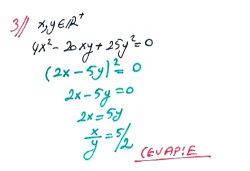 3// x,y∈ℝ⁺
4x² - 20xy + 25y² = 0
(2x - 5y)² = 0
2x - 5y = 0
2x = 5y
x/y = 5/2
CEVAP:E